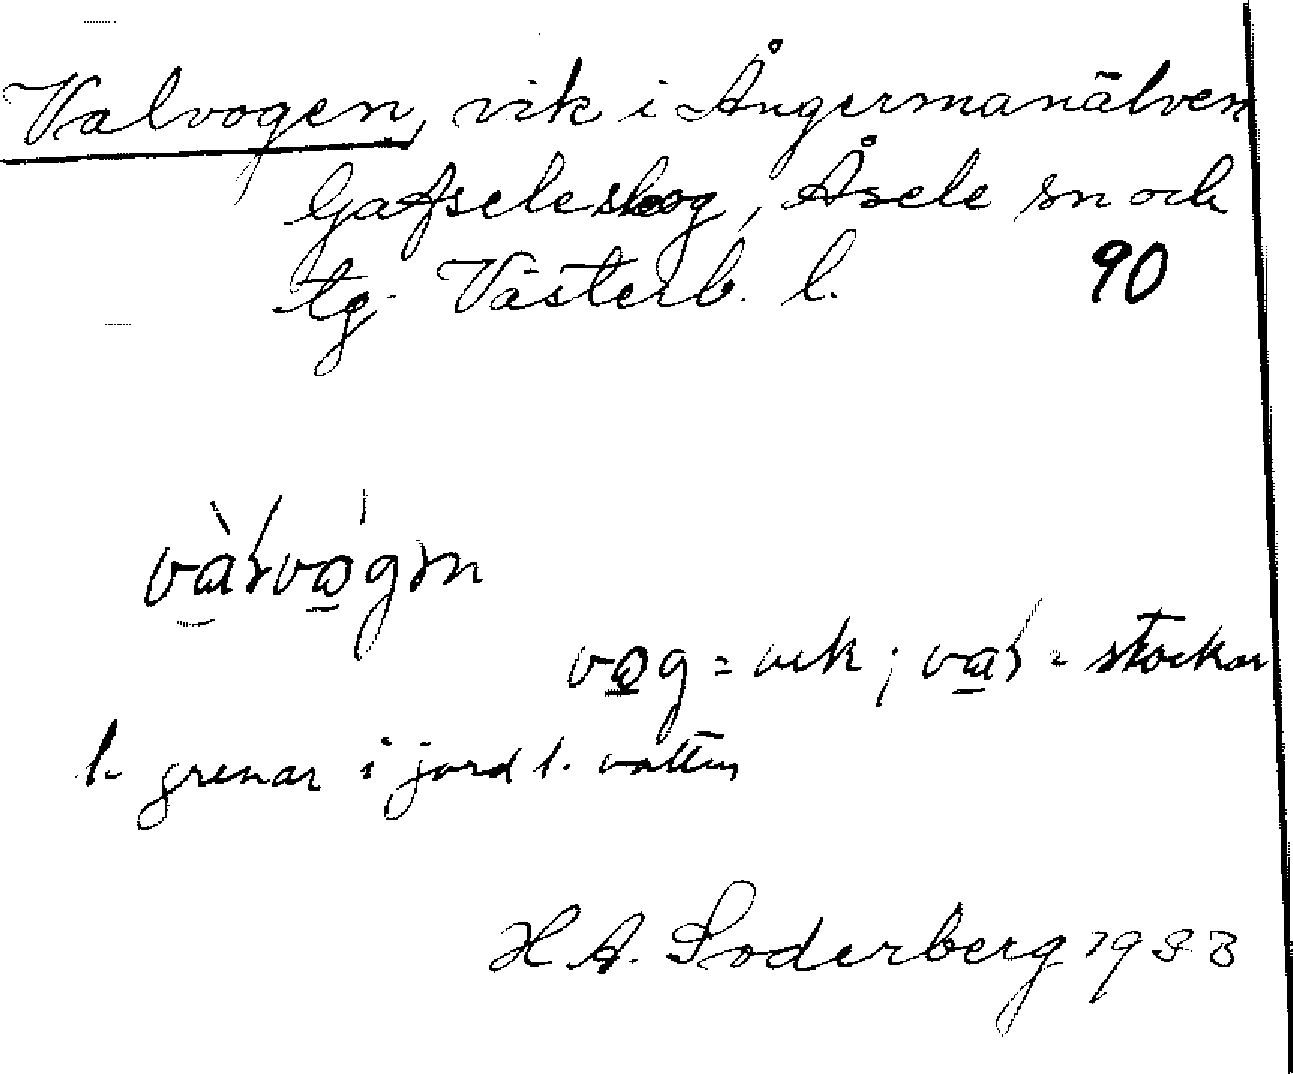 Valvogen, vik i Ångermanälven
Gafseleskog, Åsele sn och
tg. Västerb. l. 90
vog = vik ; = stockar
l. grenar i jord l. vatten
H. A. Söderberg 1933